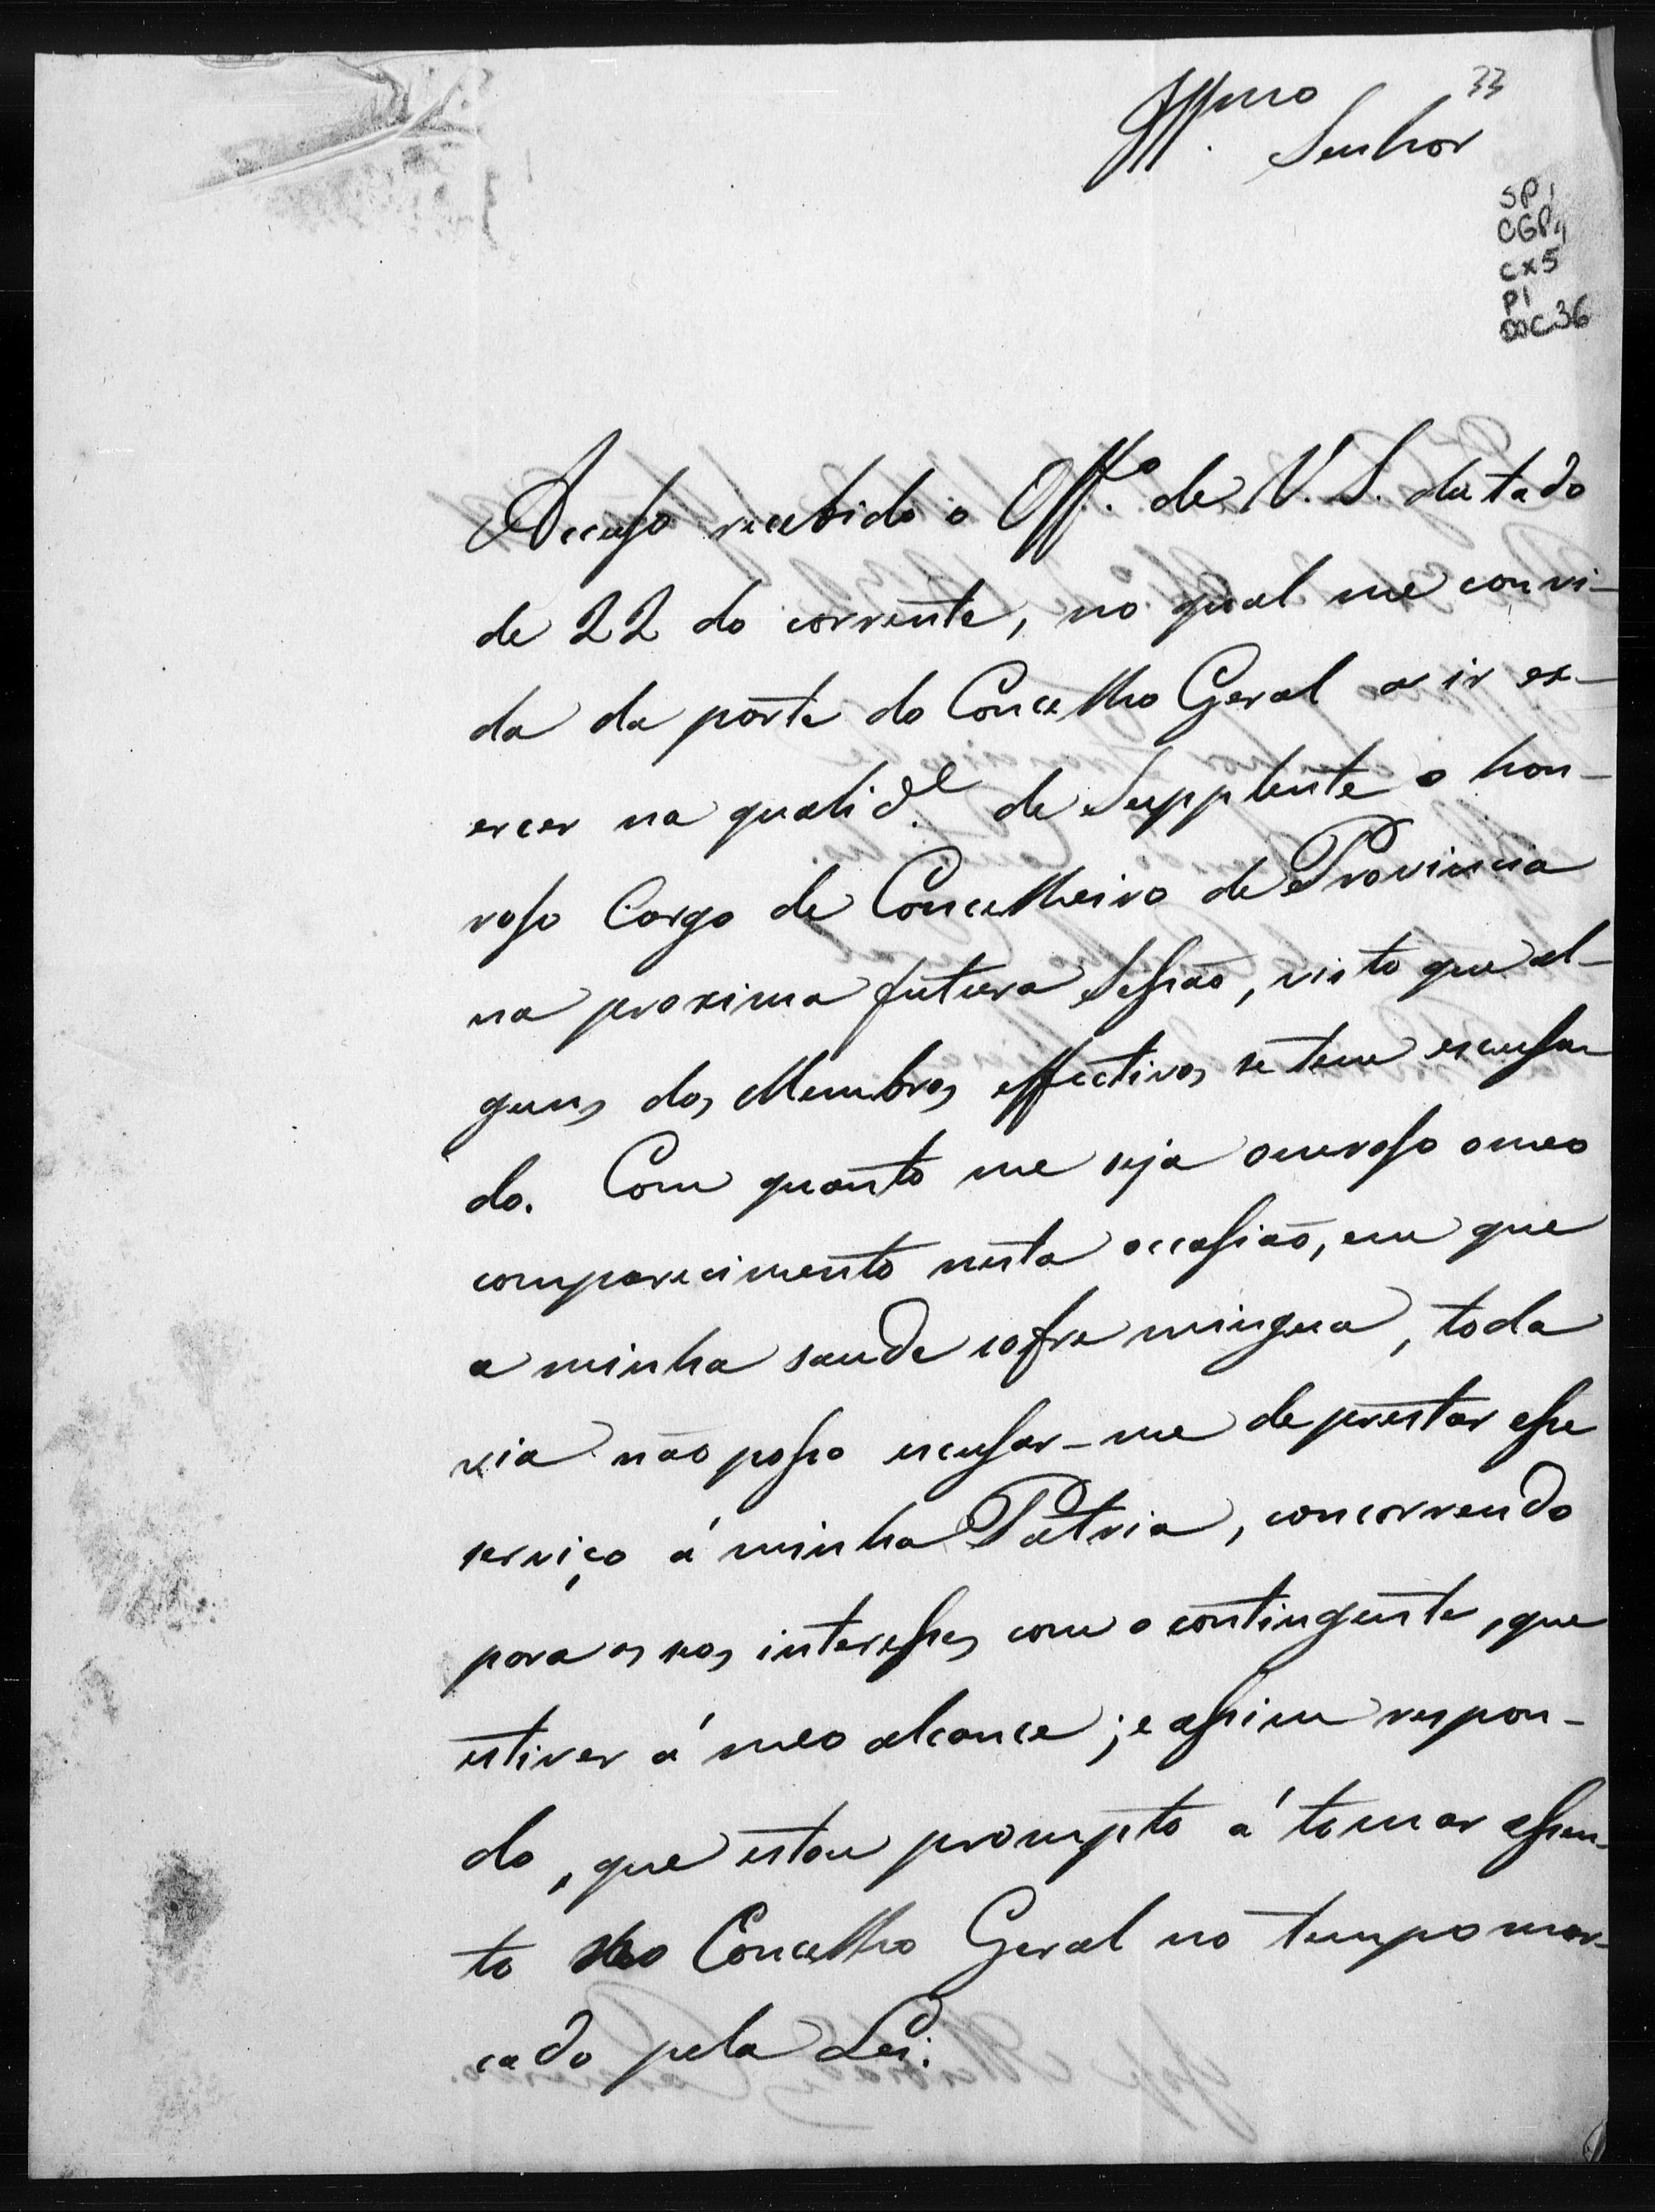 Illmo
Senhor
33
SP1
CGP4
CX5
P1
DOC36
Accuso recebido o Off.º de V. S. datado
de 22 do corrente, no qual me convi-
da da parte do Concelho Geral a ir ex-
ercer na qualid.e de Supplente o hon-
roso Cargo de Concelheiro de Provincia
na proxima futura Sessão, visto que al-
guns dos Membros effectivos se tem escusa-
do. Com quanto me seja oneroso o meo
comparecimento nesta occasião, em que
a minha saude sofre mingua, toda
via não posso escusar-me de prestar esse
serviço á minha Patria, concorrendo
para os seos interesses com o contingente, que
estiver á meo alcance; e assim respon-
do, que estou prompto á tomar assen-
to no Concelho Geral no tempo mar-
cado pela Lei.